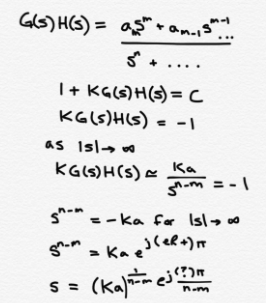 G(s)H(s) = a_m s^m + a_{m-1} s^{m-1} ... / s^n + ....
1 + KG(s)H(s) = C
KG(s)H(s) = -1
as |s| → ∞
KG(s)H(s) ≃ Ka / s^{n-m} = -1
s^{n-m} = -Ka for |s| → ∞
s^{n-m} = Ka e^{j(2l+)π}
s = (Ka)^{1/n-m} e^{j(?)π / n-m}